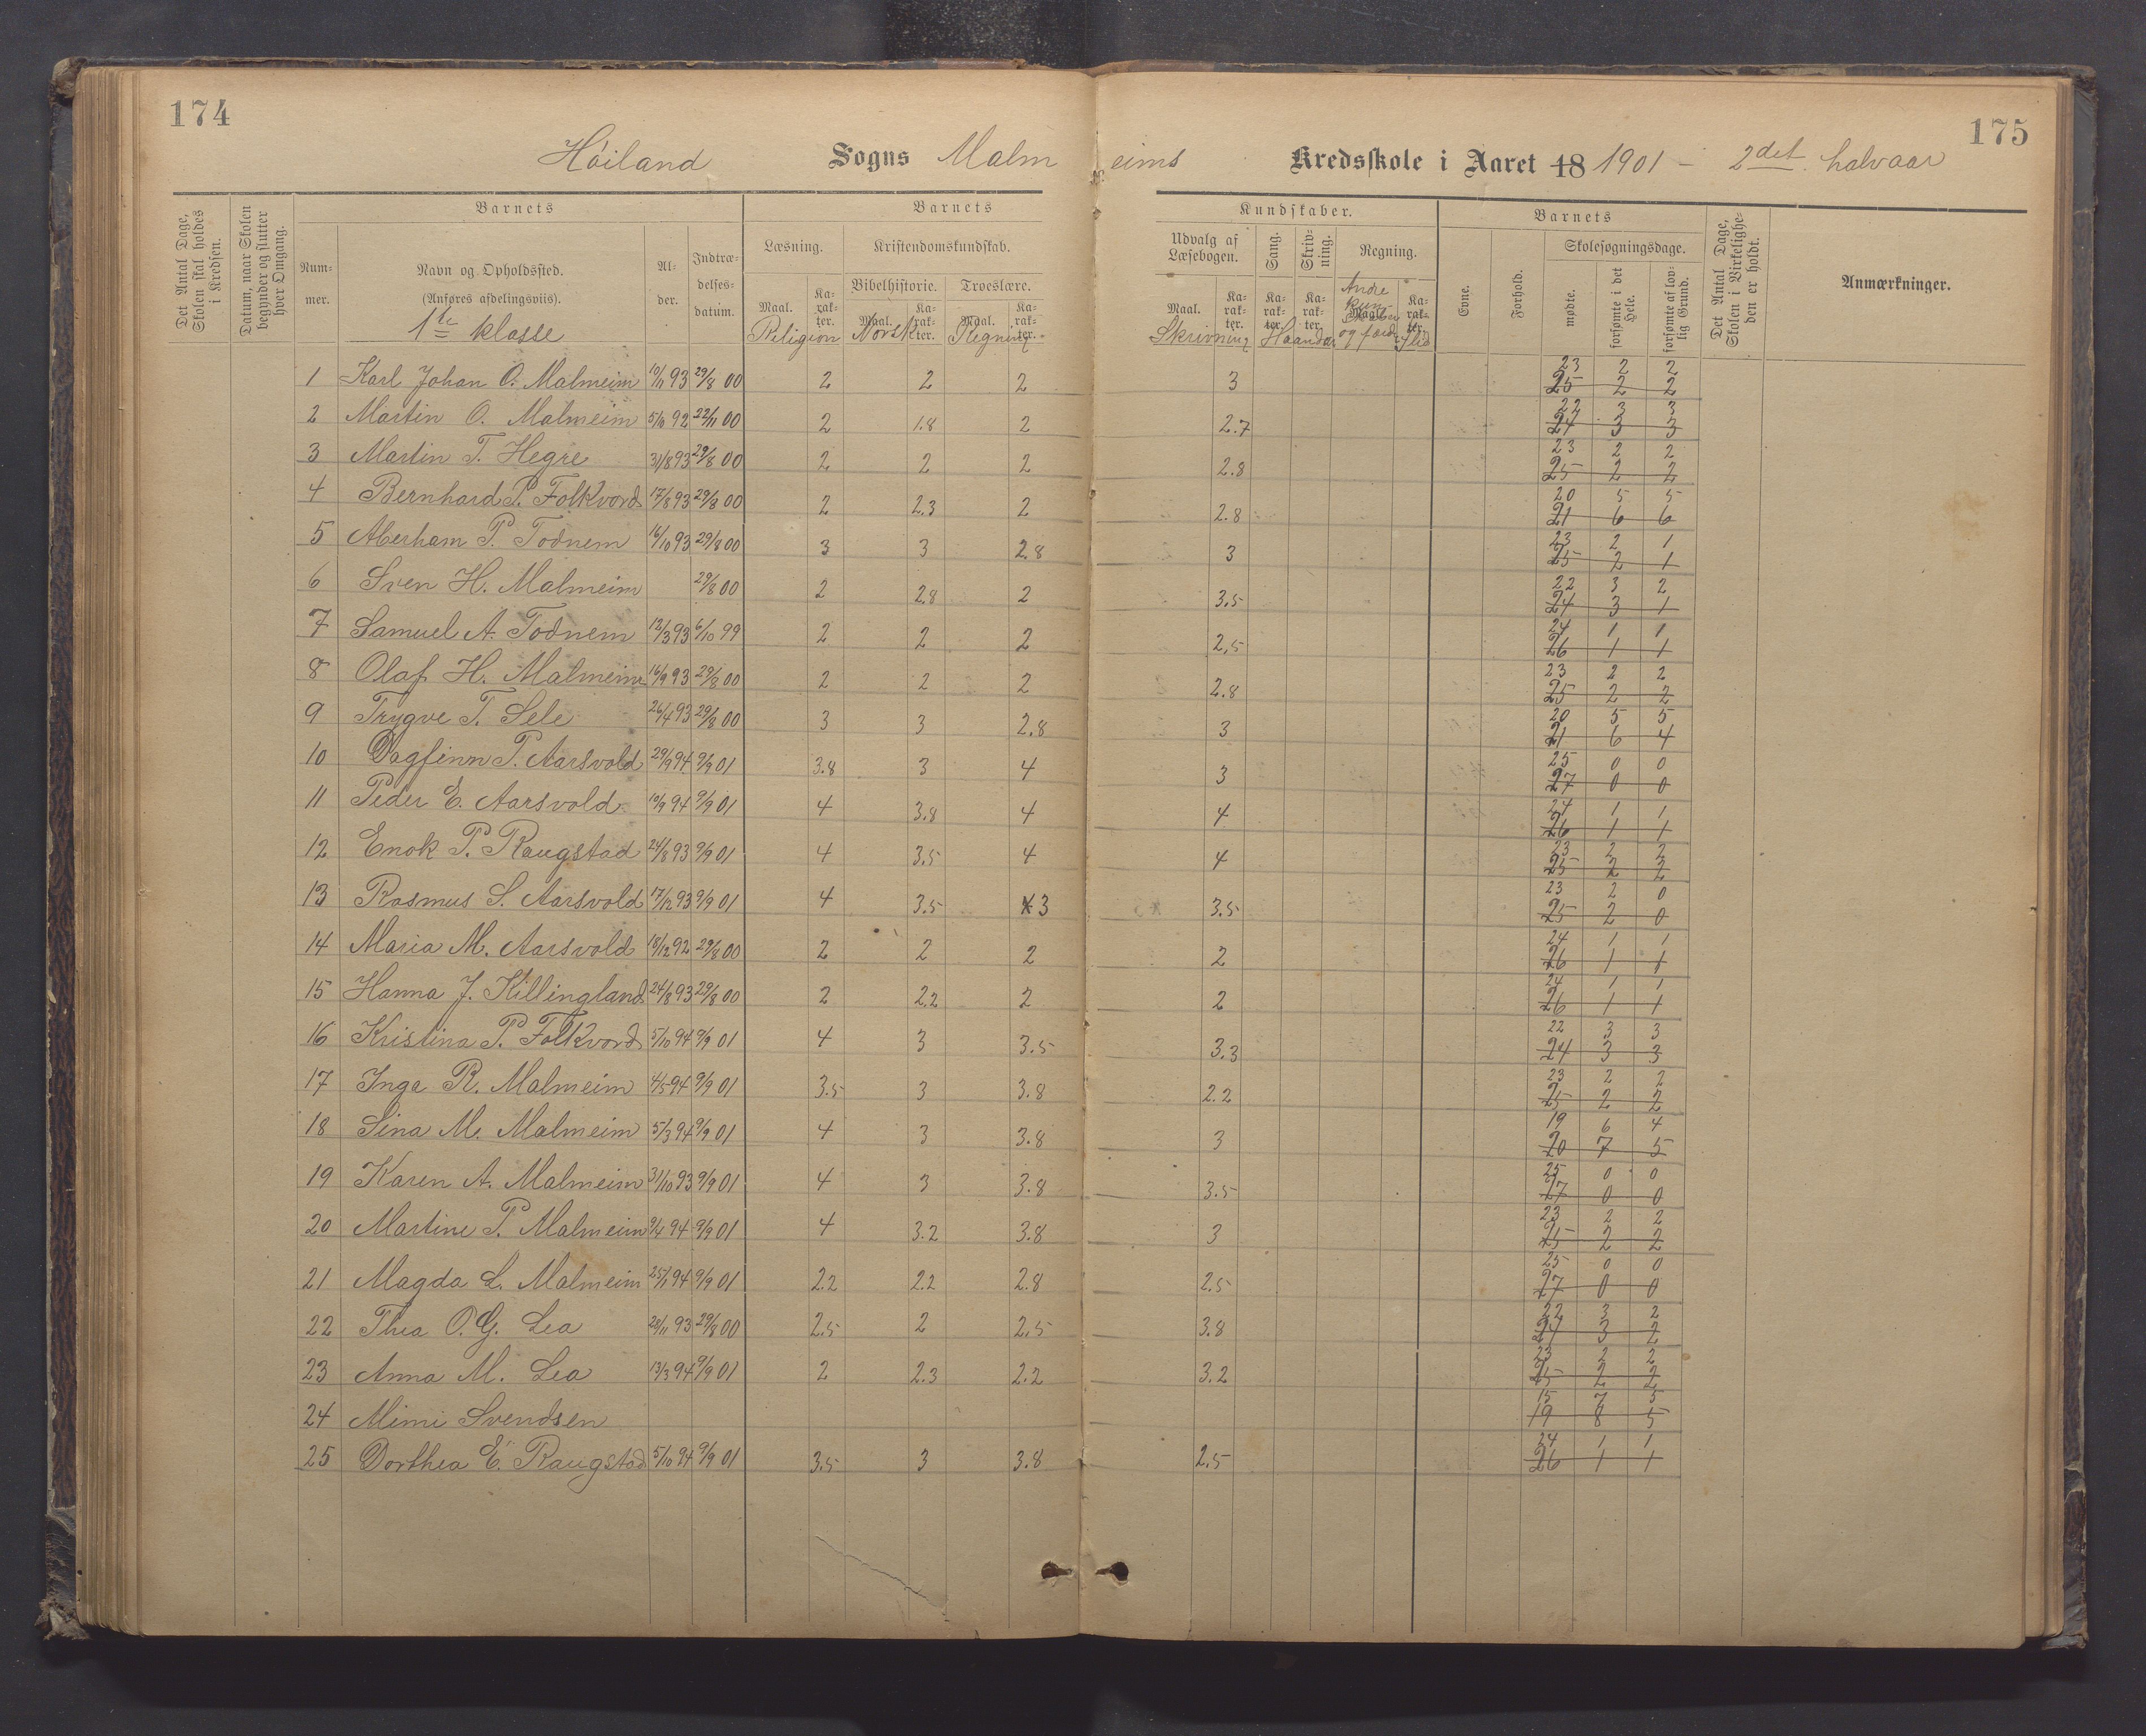 174
175
Høiland Sogns Malmeims Kredsskole i Aaret 18 1901 – 2det halvaar
Det Antal Dage, Skolen skal holdes i Kredsen.
Datum, naar Skolen begynder og slutter hver Omgang.
Barnets
Barnets
Kundskaber.
Barnets
Det Antal Dage, Skolen i Virkeligheden er holdt.
Anmærkninger.
Nummer.
Navn og Opholdssted.
(Anføres afdelingsviis).
1ste klasse
Alder.
Indtrædelsesdatum.
Læsning.
Kristendomskundskab.
Bibelhistorie. Troeslære.
Udvalg af Læsebogen.
Sang.
Skrivning.
Regning.
Evne.
Forhold.
Skolesøgningsdage.
mødte.
forsømte i det Hele.
forsømte af lovlig Grund.
Maal. Karakter. Maal. Karakter. Maal. Karakter. Maal. Karakter. Karakter. Karakter. Maal. Karakter.
Religion Norsk Regning Skrivning Haandar. Andre kun- og færd. Flid
1 Karl Johan O. Malmeim 10/11 93 29/8 00 2 2 2 3 23 2 2
25 2 2
2 Martin O. Malmeim 5/10 92 22/11 00 2 1.8 2 2.7 22 3 3
24 3 3
3 Martin T. Hegre 31/8 93 29/8 00 2 2 2 2.8 23 2 2
25 2 2
4 Bernhard P. Folkvord 17/8 93 29/8 00 2 2.3 2 2.8 20 5 5
21 6 6
5 Aberham P. Todnem 16/10 93 29/8 00 3 3 2.8 3 23 2 1
25 2 1
6 Sven H. Malmeim 29/8 00 2 2.8 2 3.5 22 3 2
24 3 1
7 Samuel A. Todnem 12/3 93 6/10 99 2 2 2 2,5 24 1 1
26 1 1
8 Olaf H. Malmeim 16/9 93 29/8 00 2 2 2 2.8 23 2 2
25 2 2
9 Trygve T. Sele 26/4 93 29/8 00 3 3 2.8 3 20 5 5
21 6 4
10 Dagfinn P. Aarsvold 29/9 94 9/9 01 3.8 3 4 3 25 0 0
27 0 0
11 Peder E. Aarsvold 10/9 94 9/9 01 4 3.8 4 4 24 1 1
26 1 1
12 Enok P. Raugstad 24/8 93 9/9 01 4 3.5 4 4 23 2 2
25 2 2
13 Rasmus S. Aarsvold 17/12 93 9/9 01 4 3.5 3 3.5 23 2 0
25 2 0
14 Maria M. Aarsvold 18/12 92 29/8 00 2 2 2 2 24 1 1
26 1 1
15 Hanna J. Killingland 24/8 93 29/8 00 2 2.2 2 2 24 1 1
26 1 1
16 Kristina P. Folkvord 5/10 94 9/9 01 4 3 3.5 3.3 22 3 3
24 3 3
17 Inga R. Malmeim 4/5 94 9/9 01 3.5 3 3.8 2.2 23 2 2
25 2 2
18 Sina M. Malmeim 5/3 94 9/9 01 4 3 3.8 3 19 6 4
20 7 5
19 Karen A. Malmeim 31/10 93 9/9 01 4 3 3.8 3.5 25 0 0
27 0 0
20 Martine P. Malmeim 9/4 94 9/9 01 4 3.2 3.8 3 23 2 2
25 2 2
21 Magda L. Malmeim 25/1 94 9/9 01 2.2 2.2 2.8 2.5 25 0 0
27 0 0
22 Thea O. G. Lea 28/11 93 29/8 00 2.5 2 2.5 3.8 22 3 2
24 3 2
23 Anna M. Lea 13/3 94 9/9 01 2 2.3 2.2 3.2 23 2 2
25 2 2
24 Mimi Svendsen 15 7 5
19 8 5
25 Dorthea E. Raugstad 5/10 94 9/9 01 3.5 3 3.8 2.5 24 1 1
26 1 1